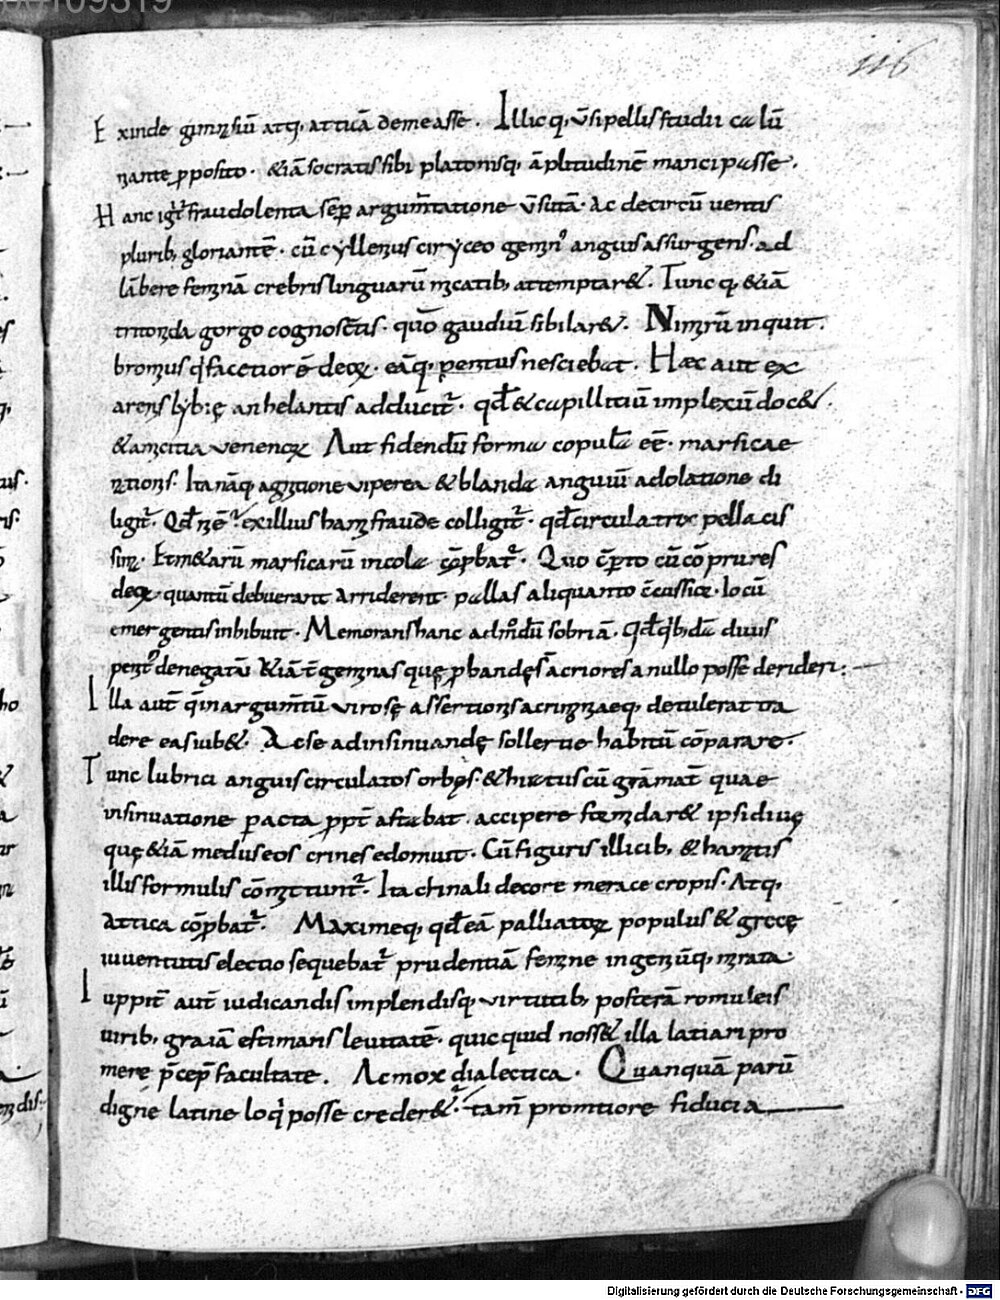 116
Exinde gimnasiū atq, atticā demeasse. Illicq, v̄sipellis studii calū
niante pposito. &iā socratis sibi platonisq, āplitudinē mancipasse.
Hanc igit᷑ fraudolenta sēp argum̄tatione v̄sutā. Ac decircū uentis
plurib, gloriantē. cū cyllenius ciryceo gemino anguis assurgens. ad
lābere feminā crebris linguarū micatib, attemptar&. Tuncq, &iā
tritonida gorgo cognoscēs. quō gaudiū sibilar&. Nimirū inquit.
bromius q̇ facetior ē deoꝝ. eāq, penitus nesciebat. Hæc aut ex
arenis lybię anhelantis adducit᷑. qđ & capillitiū implexū doc&.
& amicitia venenoꝝ Aut fidendū formæ copulā eē. marsicae
nationis. Ita nāq, agnitione viperea & blanda anguiū adolatione di
ligit᷑. Qđ nē ex illius hami fraude colligit᷑. qđ circulatrix pellacis
sima. Etm&arū marsicarū incola cōpbat᷑. Quo c̄pto cū cōprures
deoꝝ. quantū debuerant arriderent. pallas aliquanto c̄cussior. locū
emergentis inhibuit. Memorans hanc admodū sobriā. qđ q̇bdā diuis
penit᷑ denegatā. &iā t̄ geminas quę pbandęs ācriores a nullo posse derideri.
Illa aut̄ q̄ in argum̄tū virosę assertionis acrimoniaeq, detulerat tra
dere easiub&. Ac se ad insinuandę sollertie habitū cōparare.
Tunc lubrici anguis circulatos orbęs. & hiatus cū grāmat̄ quae
insinuatione pacta ppt̄ astabat. accipere formidar& ipsi diuę
quę &iā meduseos crines edomuit. Cū figuris illicib, & hamatis
illis formulis cōmittunt᷑. Ita crinali decore merace cropis. Atq,
attica cōpbat᷑. Maximeq, qđ eā palliatoꝝ populus & grecę
iuuentutis electio sequebat᷑ prudentiā femine ingeniūq, mirata.
Iuppit̄ aut̄ iudicandis implendisq, virtutib, posterā romuleis
uirib, graiā estimans leuitatē. quicquid noss& illa latiari pro
mere p̄cep̄ facultate. Ac mox dialectica. Quanquā parū
digne latine loq̇ posse creder&. tam̄ promtiore fiducia
Digitalisierung gefördert durch die Deutsche Forschungsgemeinschaft - DFG